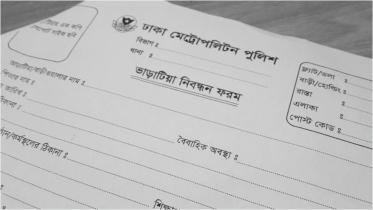 ঢাকা মেট্রোপলিটন পুলিশ
বিভাগঃ
থানা ঃ
ভাড়াটিয়া নিবন্ধন ফরম
ফ্ল্যাট/তলা ঃ
বাড়ী/হোল্ডিং ঃ
রাস্তা ঃ
এলাকা ঃ
পোস্ট কোড ঃ
ভাড়াটিয়া/বাড়ীওয়ালার নাম ঃ
পিতার নাম ঃ
বৈবাহিক অবস্থা ঃ
কর্মস্থলের ঠিকানা ঃ